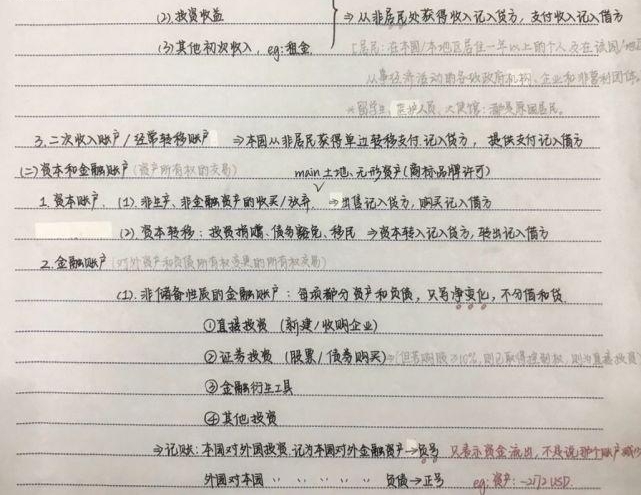 (2). 投资收益
(3) 其他初次收入, eg: 租金.
⇒ 从非居民处获得收入记入贷方, 支付收入记入借方
[居民: 在本国/本地区居住一年以上的个人及在该国/地区
从事经济活动的各级政府机构、企业和非营利团体.
* 留学生、医护人员、大使馆: 都是原国居民.
3. 二次收入账户/经常转移账户 ⇒本国从非居民获得单边转移支付记入贷方, 提供支付记入借方
(二)资本和金融账户 (资产所有权的交易)
main 土地、无形资产(商标品牌许可)
1. 资本账户. (1). 非生产、非金融资产的收买/放弃. ⇒出售记入贷方, 购买记入借方
(2). 资本转移: 投资捐赠、债务豁免、移民 ⇒资本转入记入贷方, 转出记入借方
2. 金融账户 (对外资产和负债所有权变更的所有权交易)
(1). 非储备性质的金融账户: 每项都分资产和负债, 只写净变化, 不分借和贷
①直接投资 (新建/收购企业)
②证券投资 (股票/债券购买)⇒(但若购股≥10%, 则已取得控制权, 则为直接投资)
③金融衍生工具
④其他投资
⇒记账: 本国对外国投资. 记为本国对外金融资产→负号 只表示资金流出, 不是说那个账户减少
外国对本国 〃 〃 〃 〃 〃 负债→正号 eg: 资产: -2172 USD.